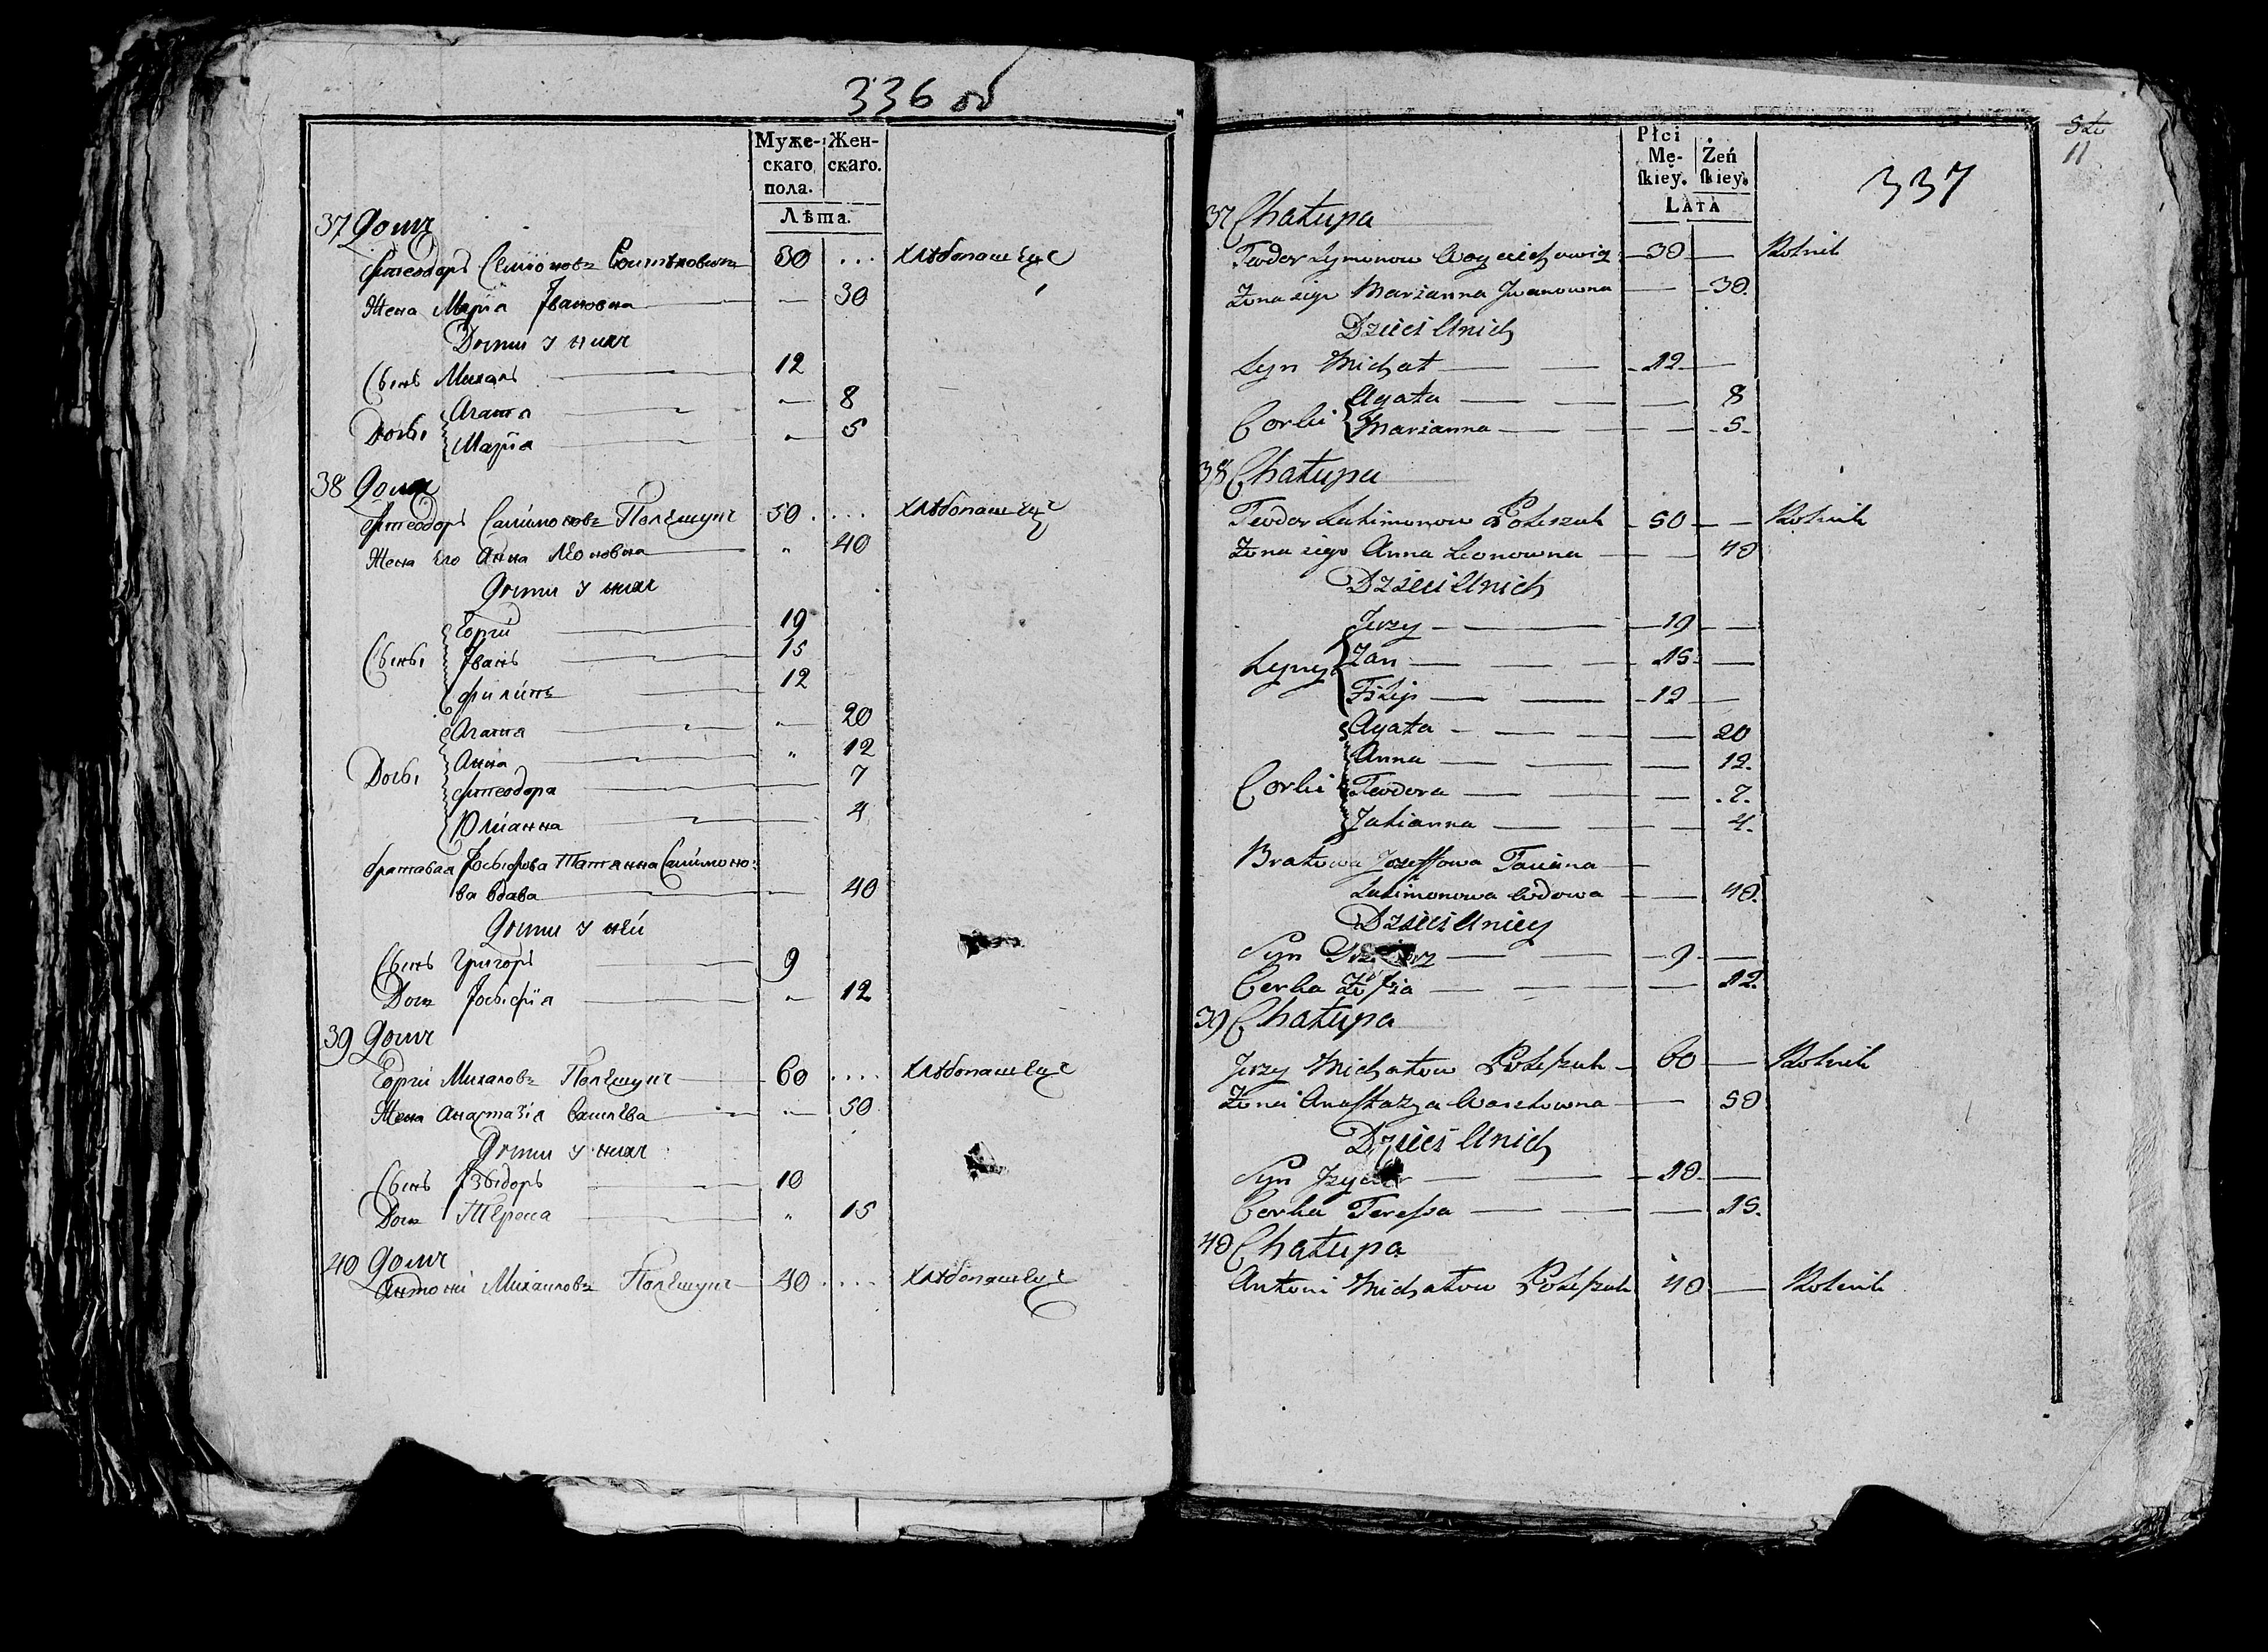 336 об
Муже- Жен-
скаго скаго.
пола.
Лѣта.
37 Домъ
Фтеодоръ Семіоновъ 30 ... хлѣбопашецъ
Жена Марiя Iвановна — 30
Дѣти у нихъ
Сынъ Михалъ 12
Дочьı Агата — 8
Марiя — 5
38 Домъ
Фтеодоръ Салимоновъ Полешукъ 50 .... хлѣбопашецъ
Жена Его Анна Леоновна " 40
Дѣти у нихъ
Еоргiй 19
Сыны Iванъ 15
Филипъ 12
Агата — 20
Дочьı Анна " 12
Фтеодора 7
Юлианна 4
братовая Iосыфова Татянна Салимоно-
ва вдова — 40
Дѣти у неи
Сынъ Григоръ 9
Дочь Iосыфiя — 12
39 Домъ
Еоргiй Михаловъ Полешукъ 60 .... хлѣбопашецъ
Жена Анастазiя Васильева — 50
Дѣти у нихъ
Сынъ Iзыдоръ 10
Дочь Тереса " 15
40 Домъ
Антонiй Михаиловъ Полешукъ 40 .... хлѣбопашецъ
11
337
Płci
Mę- Żeń
ſkiey. ſkiey.
LATA
37 Chałupa
Teodor Symonow Woyciechowicz 30 — Rolnik
Żona iego Marianna Iwanowna — 30.
Dzieci U nich
Syn Michał 12 —
Corki Agata — 8
Marianna — 5
38 Chałupa
Teodor Salimonow Poleszuk 50 — Rolnik
Żona iego Anna Leonowna — 40
Dzieci U nich
Jerzy 19 —
Syny Jan 15 —
Filip 12 —
Agata — 20
Anna — 12.
Corki Teodora — 7.
Julianna — 4.
Bratowa Jozeffowa Taciana
Salimonowa wdowa — 40.
Dzieci U niey
Syn 9 —
Corka Zofia — 12.
39 Chałupa
Jerzy Michałow Poleſzuk 60 — Rolnik
Żona Anaſtazya Wasilowna — 50
Dzieci U nich
Syn 10 —
Corka Tereſsa — 15.
40 Chałupa
Antoni Michałow Poleſzuk 40 — Rolnik